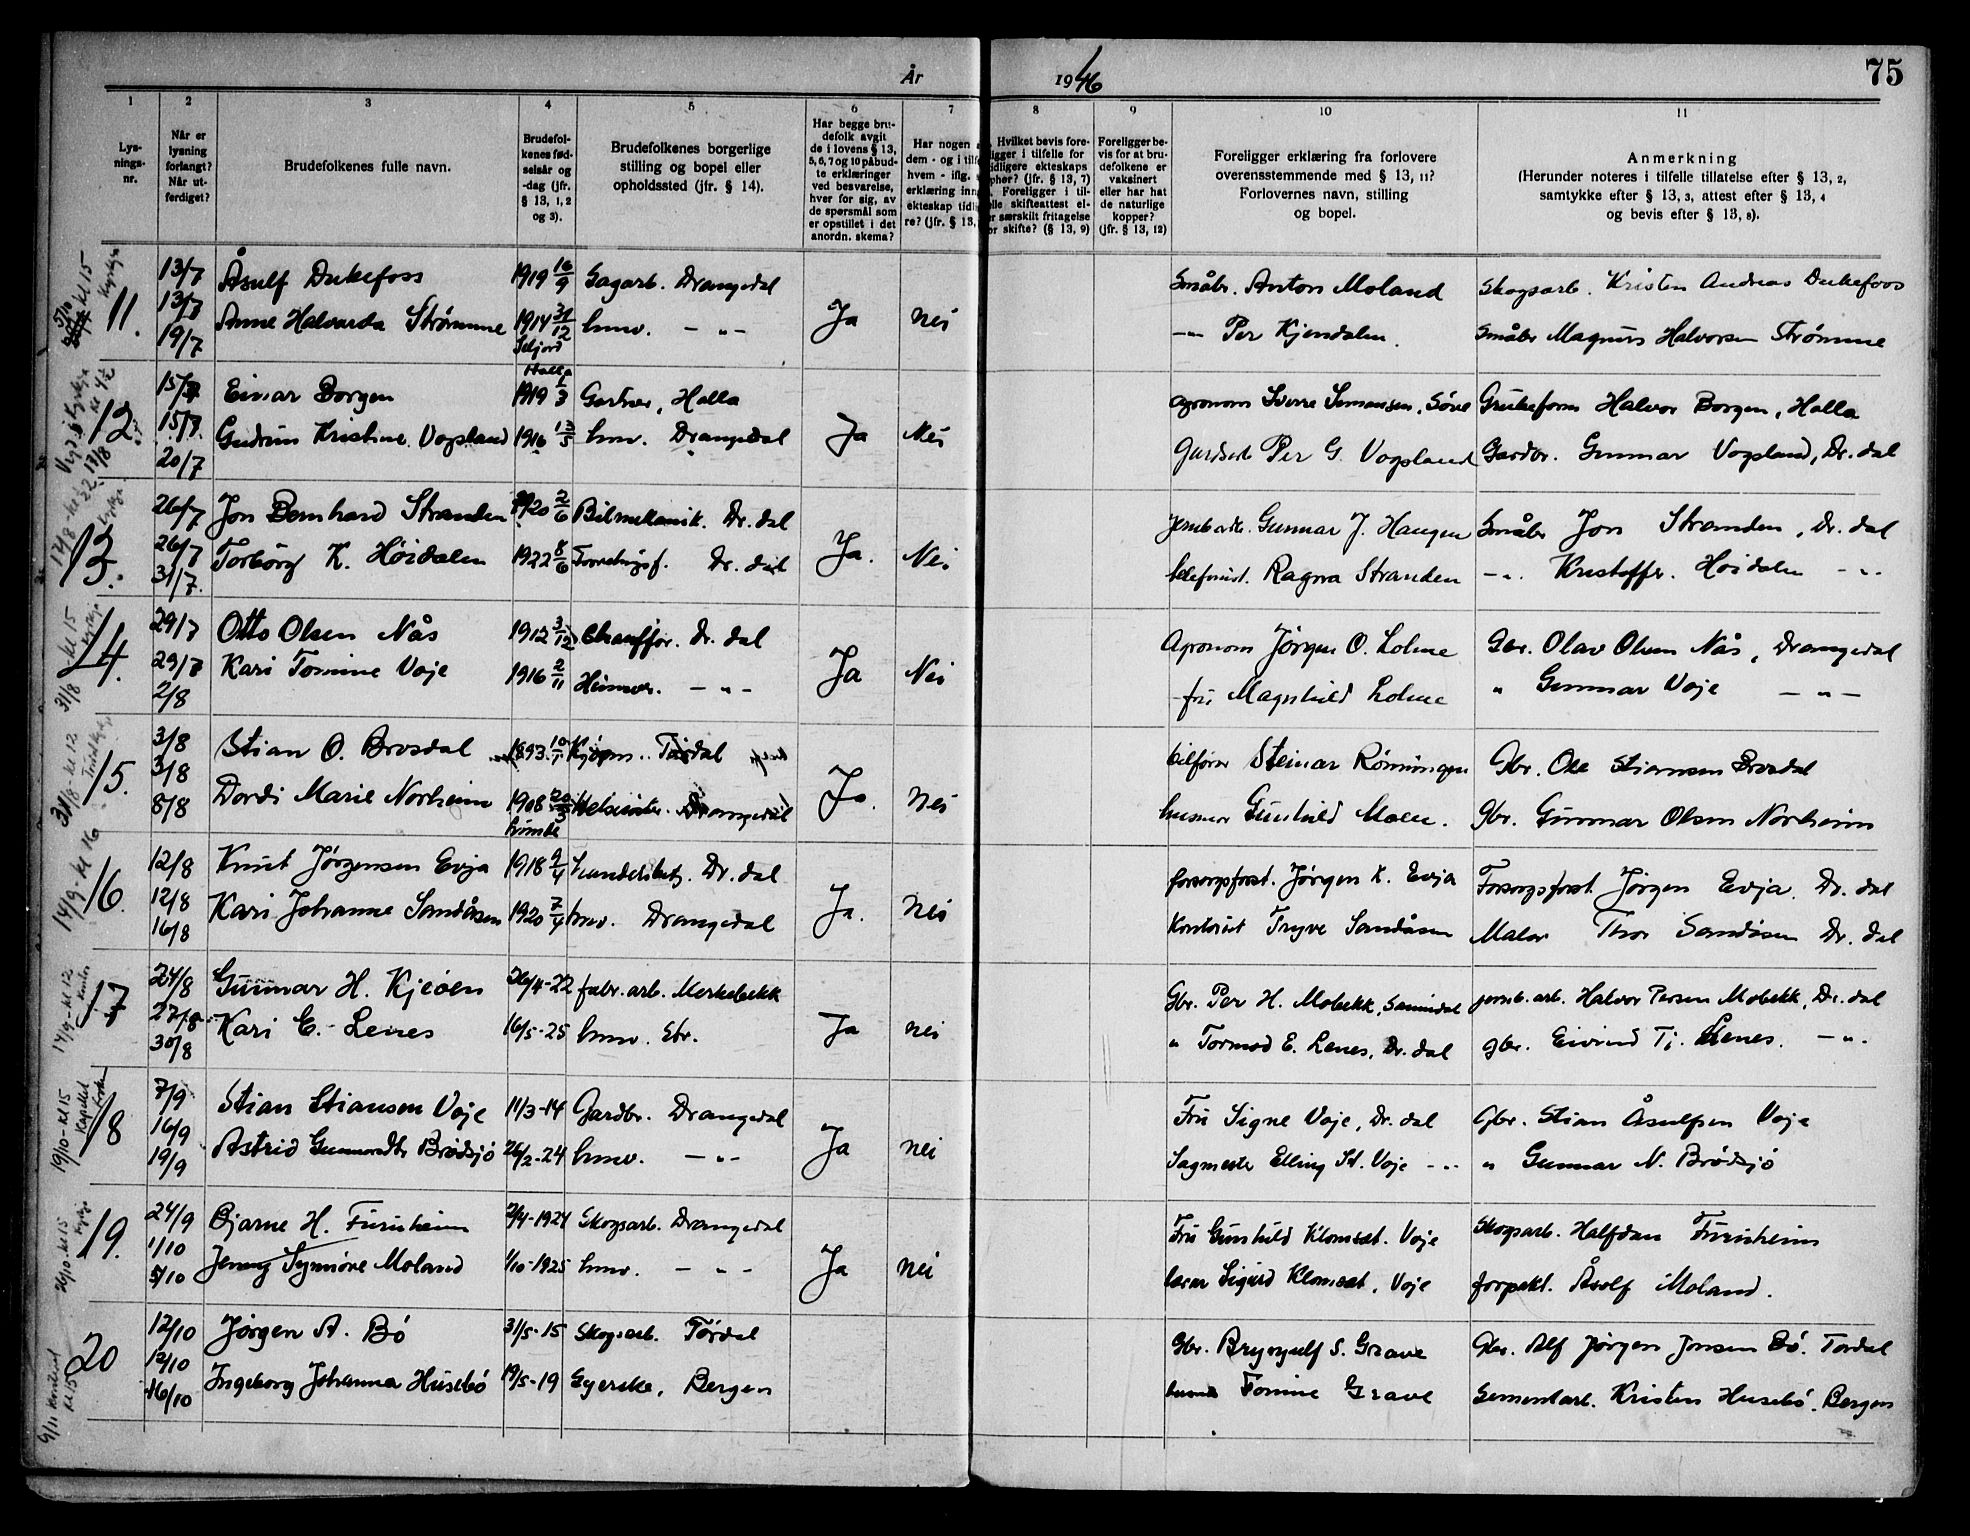 År 1946
75
1 2 3 4 5 6 7 8 9 10 11
Lysnings-nr.
Når er lysning forlangt? Når utferdiget?
Brudefolkenes fulle navn.
Brudefolkenes fødselsår og -dag (jfr. § 13, 1, 2 og 3).
Brudefolkenes borgerlige stilling og bopel eller opholdssted (jfr. § 14).
Har begge brudefolk avgit de i lovens § 13, 5, 6, 7 og 10 påbudte erklæringer ved besvarelse, hver for sig, av de spørsmål som er opstillet i det anordn. skema?
Har nogen
dem - og i tilf
hvem - iflg.
erklæring inn
ekteskap tidl
re? (jfr. § 13,
Hvilket bevis fore-
igger i tilfelle for
idligere ekteskaps
phør? (jfr. § 13, 7)
Foreligger i til-
lle skifteattest el-
r særskilt fritagelse
or skifte? (§ 13, 9)
Foreligger bevis for at brudefolkene er vaksinert eller har hat de naturlige kopper? (jfr. § 13, 12)
Foreligger erklæring fra forlovere overensstemmende med § 13, 11? Forlovernes navn, stilling og bopel.
Anmerkning (Herunder noteres i tilfelle tillatelse efter § 13, 2, samtykke efter § 13, 3, attest efter § 13, 4 og bevis efter § 13, 8).
kl 15
11. 13/7 Åsulf Dukefoss 1919 16/9 Sagarb. Drangedal Småbr. Anton Moland Skogsarb. Kristen Andreas Dukefoss
13/7 Anne Halvarda Strømme 1914 31/12 hmv. — " — Ja nei — " — Per Kjendalen. Småbr Magnus Halvorsen Strømme
19/7 Seljord
Holla
12. 15/7 Einar Borgen 1919 1/3 Gartner, Holla agronom Sverre Simonsen, Søve Grubeform Halvor Borgen, Holla
15/7 Gudrun Kristine Vogsland 1916 13/5 hmv. Drangedal Ja Nei Gardsarb Per G. Vogsland Gardbr. Gunnar Vogsland, Dr.dal
20/7
13/8
17/8 - kl
13. 26/7 Jon Bernhard Stranden 1920 2/6 Bilmekanik. Dr.dal Jernb.arb. Gunnar J. Haugen Småbr Jon Stranden, Dr.dal
26/7 Torborg K. Høidalen 1922 8/6 Dr.dal Ja. Nei telefonist. Ragna Stranden — " . Kristoffer. Høidalen — " —
31/7.
31/8 - kl 15
14. 29/7 Otto Olsen Nås 1912 3/12 Chauffør. Dr.dal Agronom Jørgen O. Lohne Gbr. Olav Olsen Nås, Drangedal
29/7 Kari Tomine Voje 1916 2/11 Heimev. — " — Ja Nei fru Magnhild Lohne " Gunnar Voje — " —
2/8
31/8 kl 12
15. 3/8 Stian O. Brosdal 1893 10/1 Kjøpm. Tørdal bilfører Steinar Rønningen Gbr. Ole Stiansen Brosdal
3/8
8/8 Dordi Marie Norheim 1908 Helsesøster. Drangedal Ja. nei husmor Gunhild Moen. gbr. Gunnar Olsen Norheim
Lunde
14/9 - kl 16
16. 12/8 Knut Jørgensen Evja 1918 9/4 Dr.dal forsorgsforst. Jørgen K. Evja Forsorgsforst Jørgen Evja. Dr.dal
12/8 Kari Johanne Sandåsen 1920 7/4 hmv. Drangedal Ja. nei Kontorist Trygve Sandåsen Maler Thor Sandåsen Dr.dal
16/8
14/9 - kl 12
17 24/8 Gunnar H. Kjeøen 26/4-22 fabr.arb. Merkebekk Gbr. Per H. Mobekk, Sannidal jernb.arb. Halvor Persen Mobekk, Dr.dal
27/8 Kari E. Lenes 16/5-25 hmv. Str. Ja nei " Tormod E. Lenes, Dr.dal gbr. Eivind Tj. Lenes. — " —
30/8
19/10 - kl 15
Kapellet
18 7/9 Stian Stiansen Voje 11/3-14 Gardbr. Drangedal Fru Signe Voje, Dr.dal Gbr. Stian Åsulfsen Voje
16/9 Astrid Gunnarsdtr Brødsjø 26/2-24 hmv. — " — Ja nei Sagmester Elling St. Voje — " — " Gunnar N. Brødsjø
19/9
26/10 - kl 15
19. 24/9 Bjarne H. Furuheim 2/4-1924 Skogsarb. Drangedal Fru Gunhild Klomset. Voje Skogsarb. Halfdan Furuheim
1/10 Jenny Synnøve Moland 1/10-1925 hmv. — " — Ja nei lærer Sigurd Klomset, Voje forpakt. Åsolf Moland.
5/10
9/11
kl 15
20 12/10 Jørgen A. Bø 31/5-15 Skogsarb. Tørdal Gbr. Brynjulf S. Grave Gbr. Alf Jørgen Jonsen Bø. Tørdal
12/10 Ingeborg Johanna Husebø 19/5-19 Syerske, Bergen Tomine Grave Sementarb. Kristen Husebø. Bergen
16/10